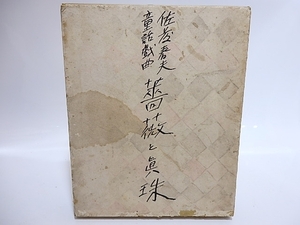 佐藤春夫
童話戯曲
薔薇と眞珠